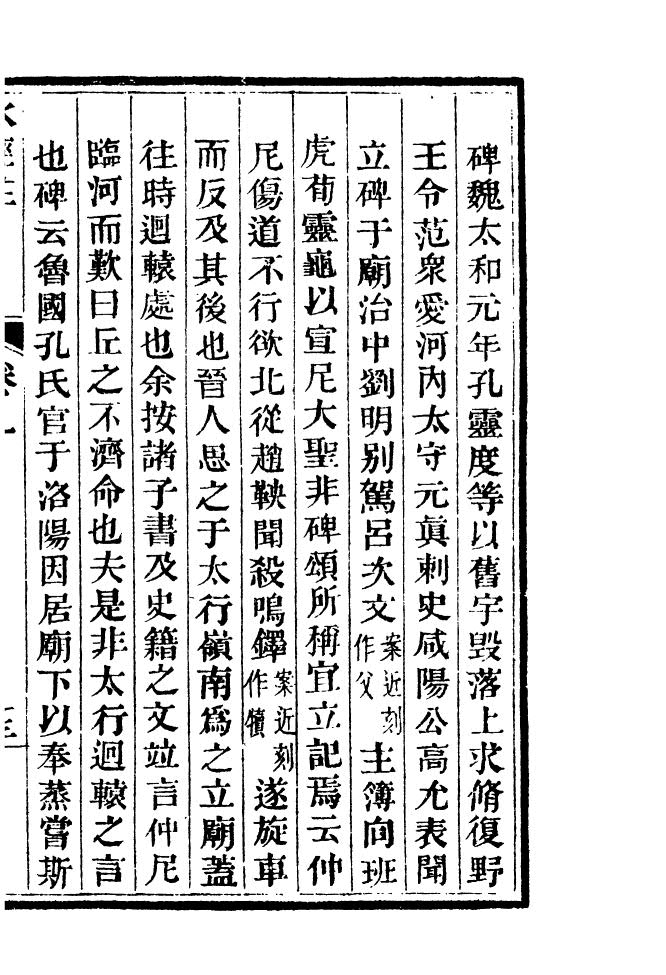 碑魏太和元年孔靈度等以舊宇毀落上求脩復野
王令范衆愛河內太守元眞刺史咸陽公高允表聞
立碑于廟治中劉明別駕呂次文案近刻作父主簿向班
虎荀靈龜以宣尼大聖非碑頌所稱宜立記焉云仲
尼傷道不行欲北從趙鞅聞殺鳴鐸案近刻作犢遂旋車
而反及其後也晉人思之于太行嶺南爲之立廟蓋
往時迴轅處也余按諸子書及史籍之文竝言仲尼
臨河而歎曰丘之不濟命也夫是非太行迴轅之言
也碑云魯國孔氏官于洛陽因居廟下以奉蒸嘗斯